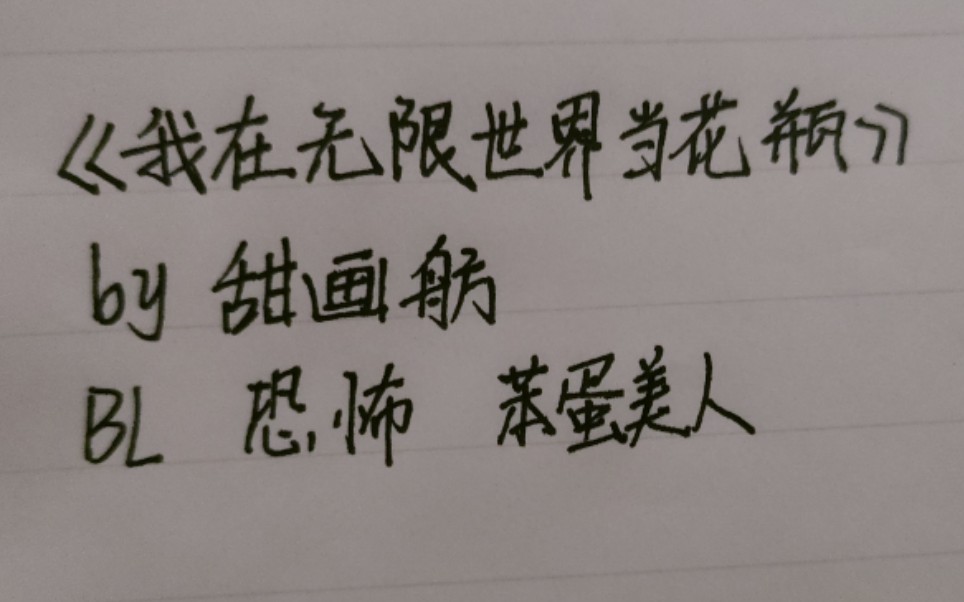 《我在无限世界当花瓶》
by 甜画舫
BL 恐怖 苯蛋美人